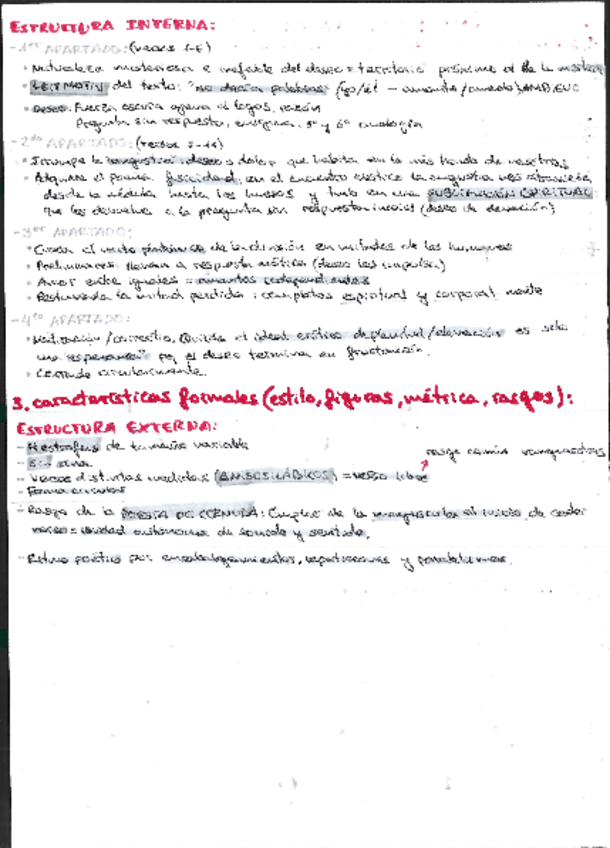 ESTRUCTURA INTERNA:
- 1er APARTADO: (versos 1-6)
• Naturaleza misteriosa e inefable del deseo = territorio próximo al de la
• LEITMOTIV del texto: "no decía palabras" (yo/él - amante/amado)
• Deseo: Fuerza oscura ajena al logos, razón
Pregunta sin respuesta, enigma.
- 2do APARTADO: (versos
• Irrumpe la angustia: deseo = dolor que habita en lo más hondo de nosotros
• Adquiere el poema fisicidad, en el encuentro erótico la angustia nos atraviesa,
desde la médula hasta los huesos y todo en una SUBLIMACIÓN ESPIRITUAL
que los devuelve a la pregunta sin respuesta inicial (deseo de
- 3er APARTADO:
• el mito platónico de la división en mitades de los humanos
• Preliminares llevan a respuesta erótica (deseo los impulsa)
• Amor entre iguales = amantes
• Restaurada la mitad perdida: completos espiritual y corporal mente
- 4to APARTADO:
• el ideal erótico de plenitud/ es solo
una "esperanza" pq el deseo termina en frustración.
• Cerrado circularmente.
3. características formales (estilo, figuras, métrica, rasgos):
ESTRUCTURA EXTERNA:
- estrofas de tamaño variable
- Sin rima
rasgo común vanguardistas
- Versos distintas medidas (AMÉTRICOS) = verso libre
- Forma circular
- Rasgo de la POESÍA DE CERNUDA: Empleo de la mayúscula al inicio de cada
verso = unidad autónoma de sonido y sentido.
- Ritmo poético por encabalgamientos, repeticiones y paralelismos.